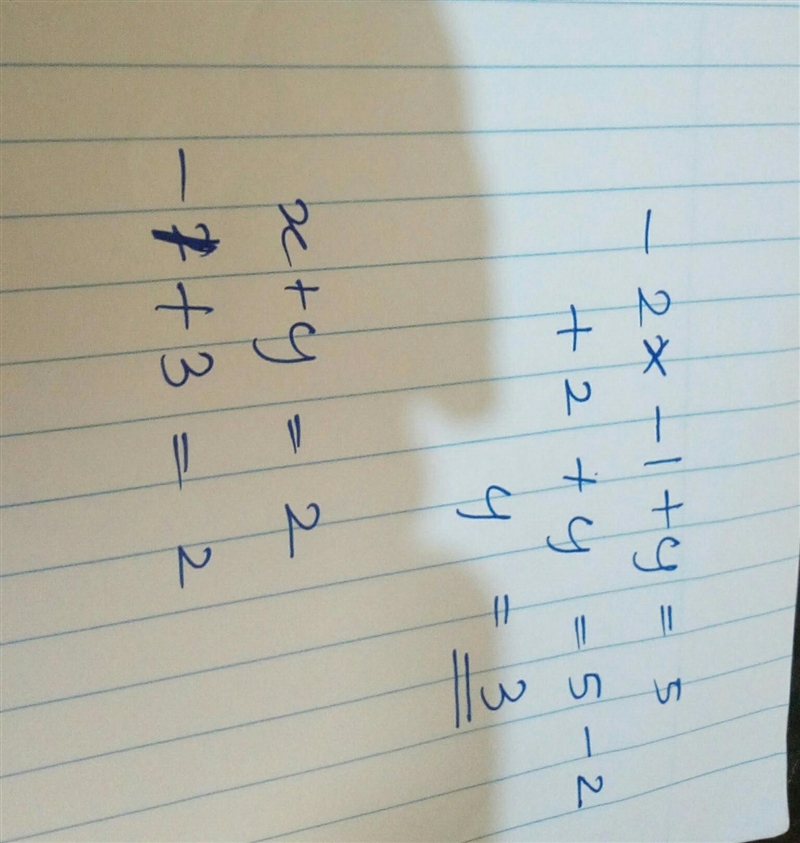 - 2 x - 1 + y = 5
+ 2 + y = 5 - 2
y = 3
x + y = 2
- 1 + 3 = 2